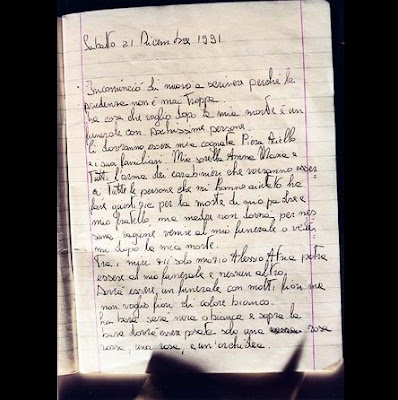 Sabato 21 Dicembre 1991
Incomincio di nuovo a scrivere perché la
prudenza non è mai troppa.
La cosa che voglio dopo la mia morte è un
funerale con pochissime persone.
Ci dovranno essere mia cognata Piera Aiello
e i sua familiari. Mia sorella Anna Maria e
Tutti l'arma dei carabinieri che vorranno esser
e Tutte le persone che mi hanno aiutato ha
fare giustizia per la morte di mio padre e
mio fratello, mia madre non dovrà per nes
suna ragione venire al mio funerale o veder
mi dopo la mia morte.
Tra i miei zii solo marito Alessio potrà
essere al mio funerale e nessun altro.
Dovrà essere un funerale con molti fiori ma
non voglio fiori di colore bianco.
La bara sarà nera o bianca e sopra la
bara dovrà essere posata solo una rosa
rossa, una rosa, e un'orchidea.